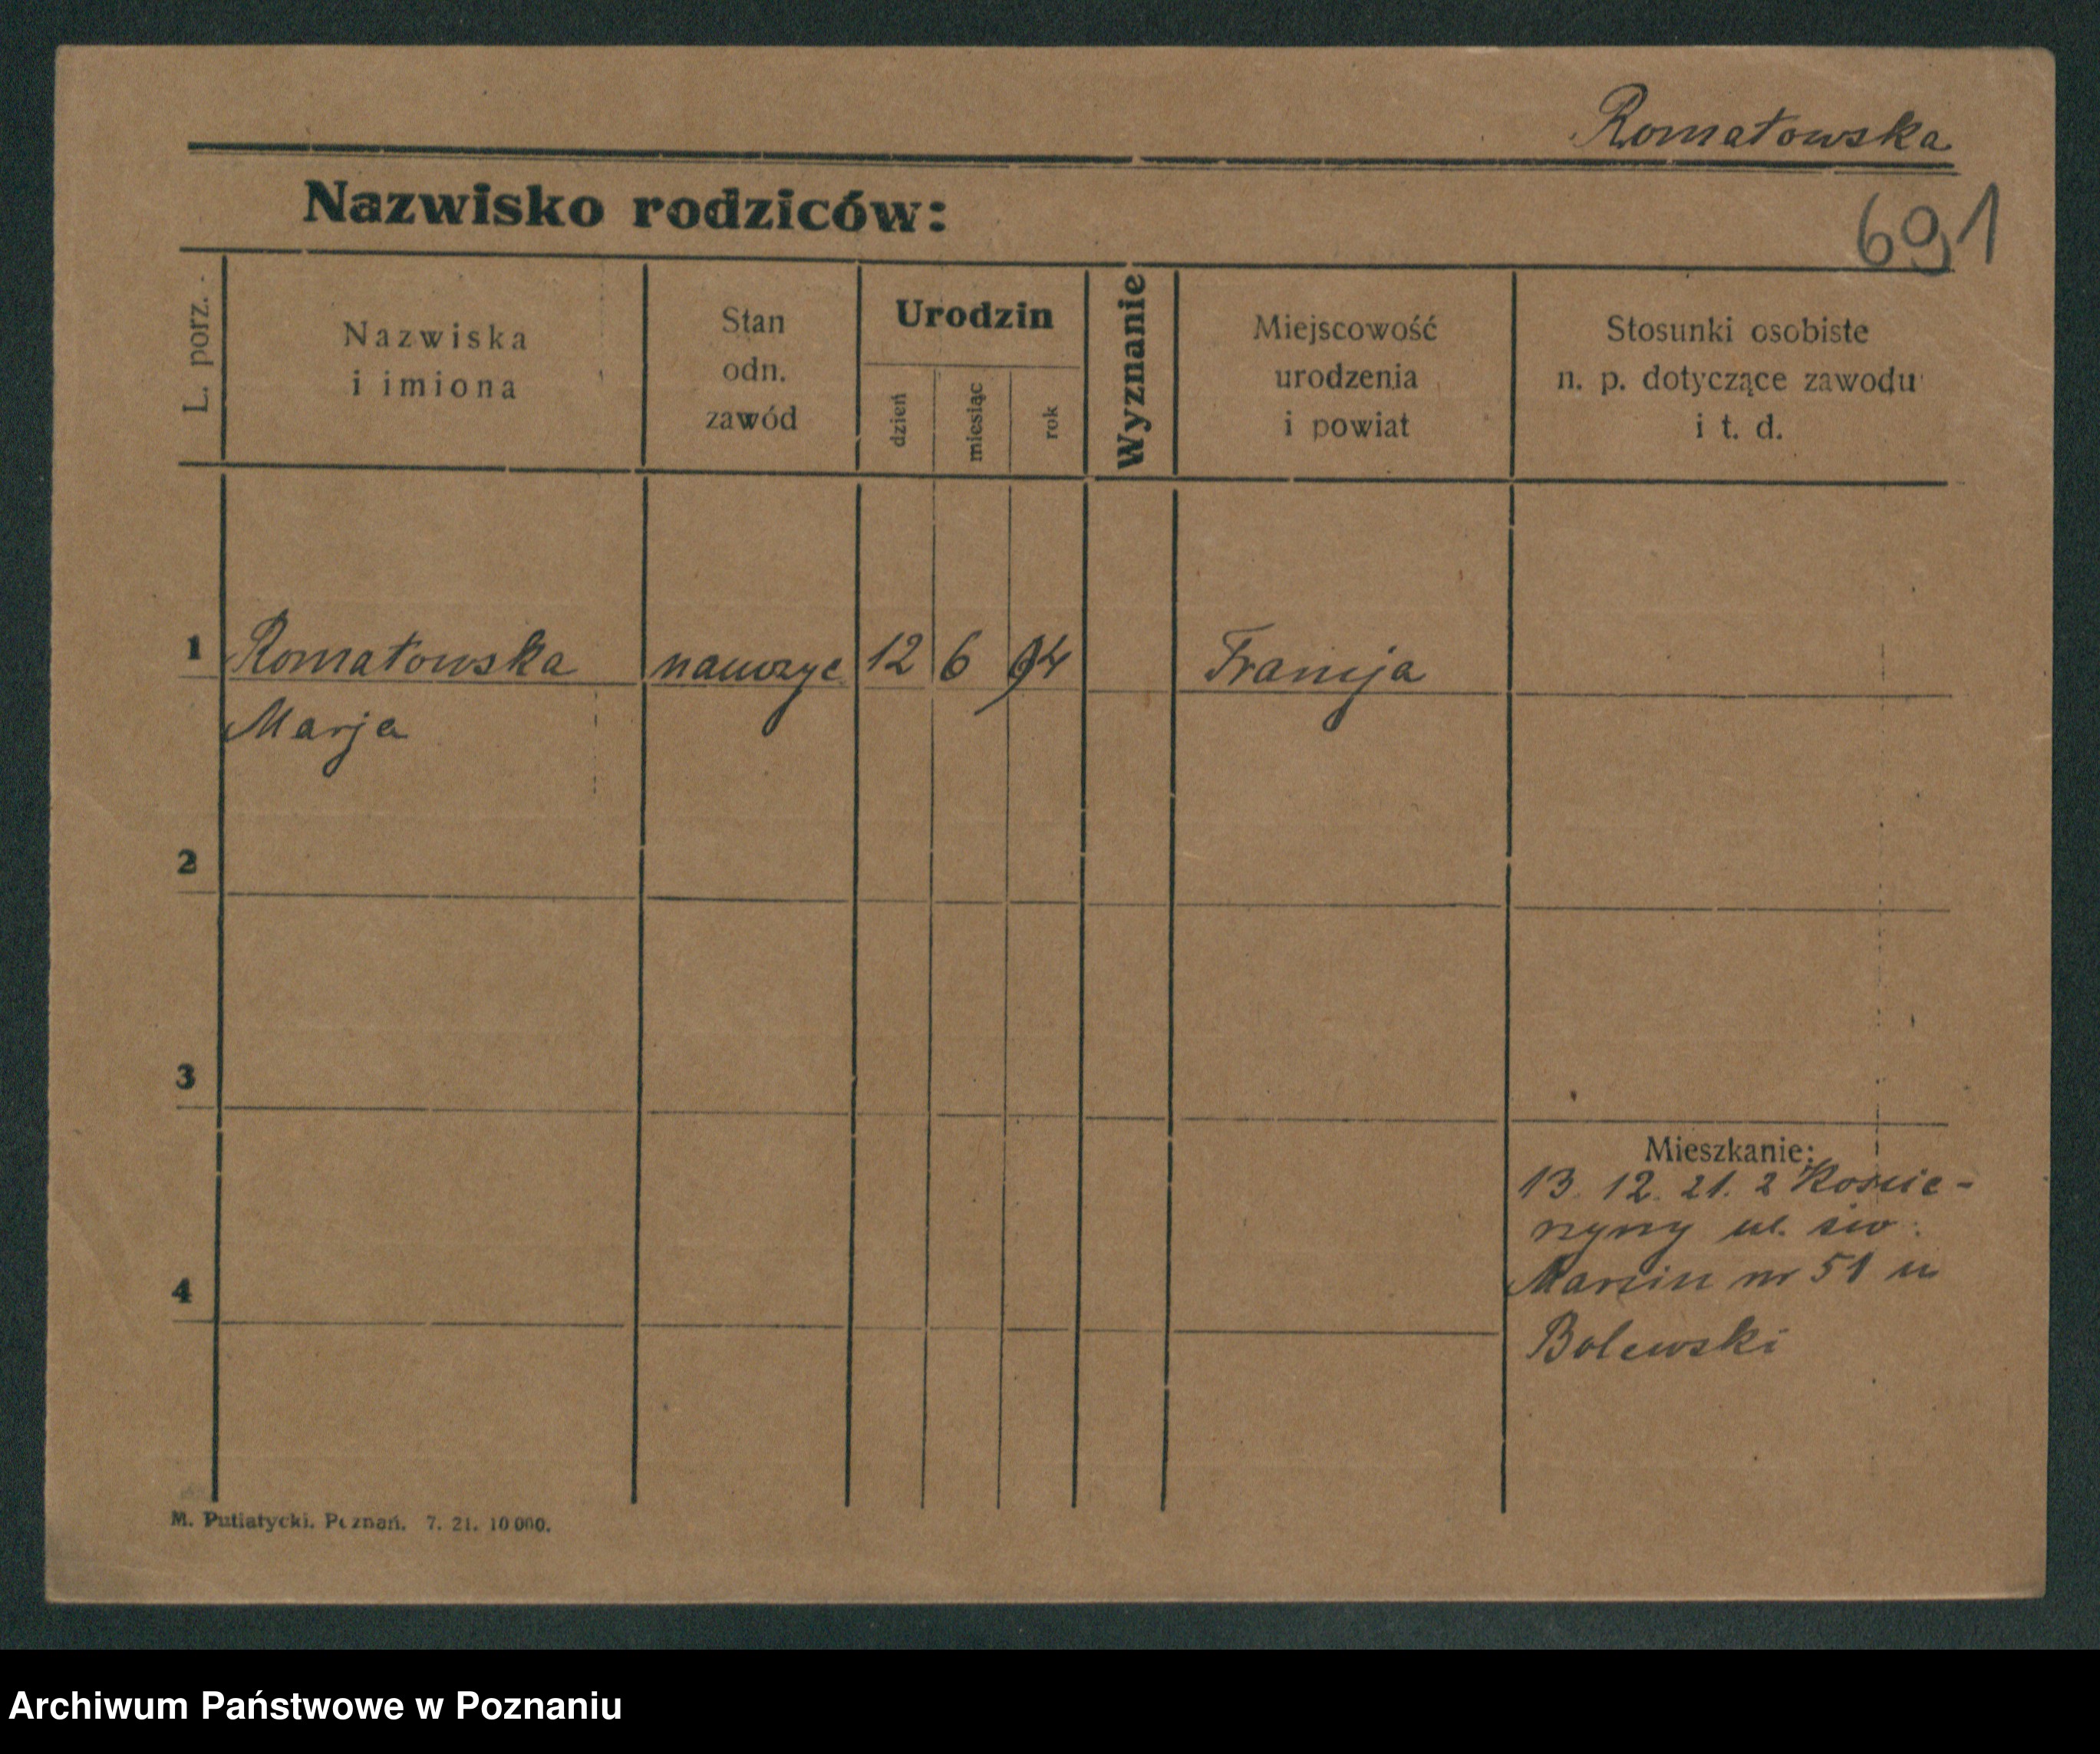 Romatowska
Nazwisko rodziców:
691
L. porz.
Nazwiska
i imiona
Stan
odn.
zawód
Urodzin
dzień
miesiąc
rok
Wyznanie
Miejscowość
urodzenia
i powiat
Stosunki osobiste
n. p. dotyczące zawodu
i t. d.
1 Romatowska nauczyc 12 6 94 Francja
Marja
2
3
Mieszkanie:
13. 12. 21. z Koście-
rzyny ul. św.
4
Marcin nr 51 u
Bolewski
M. Putiatycki. Poznań. 7. 21. 10 000.
Archiwum Państwowe w Poznaniu